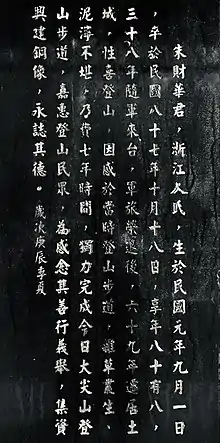 朱財華君，浙江人氏，生於民國元年九月一日
，卒於民國八十七年十月十八日，享年八十有八，
三十八年隨軍來台，軍旅榮退後，六十九年遷居土
城，性喜登山，因感於當時登山步道，雜草叢生、
泥濘不堪，乃費七年時間，獨力完成今日大尖山登
山步道，嘉惠登山民眾，為感念其善行義舉，集資
興建銅像，永誌其德。歲次庚辰季夏